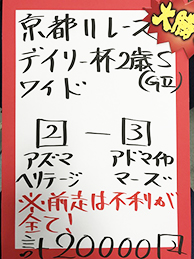 大勝
京都11レース
デイリー杯2歳S
(GII)
ワイド
2 - 3
アズマ アドマイヤ
ヘリテージ マーズ
※前走は不利が
全て!
20000円